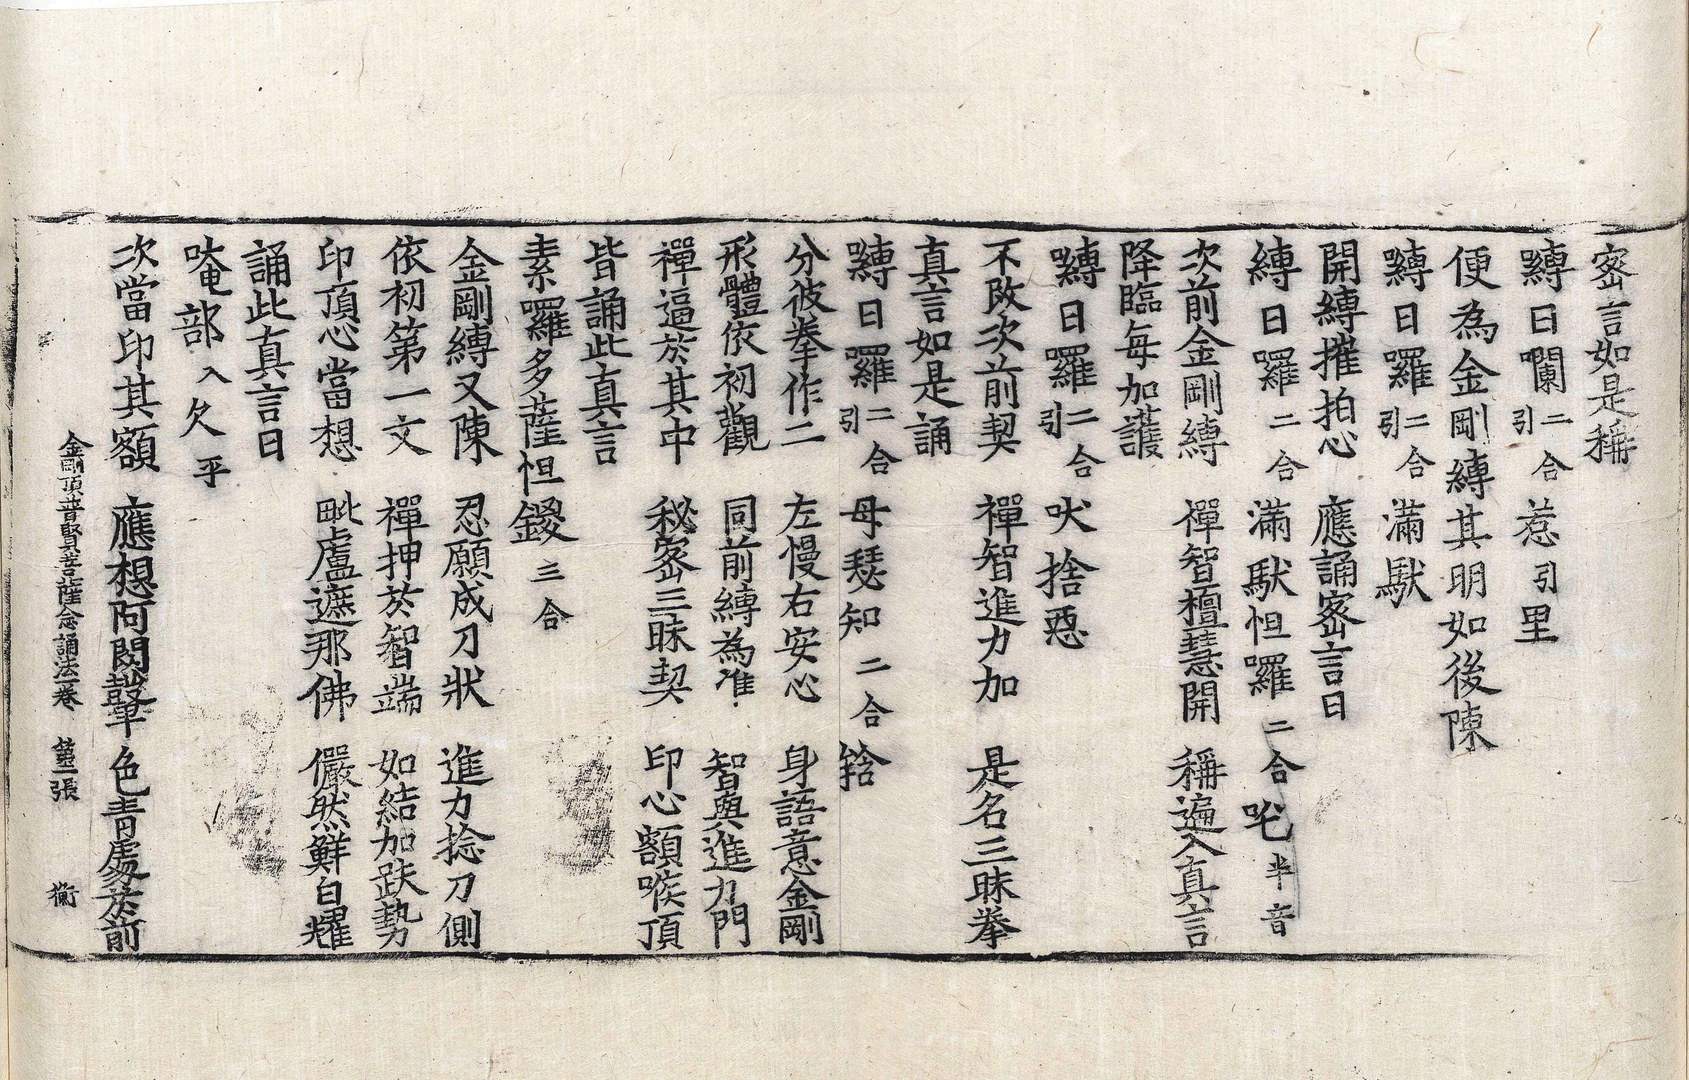 密言如是稱
嚩日囒二合引惹引里
便為金剛縛其明如後陳
嚩日囉二合引滿馱
開縛摧拍心 應誦密言曰
縛日囉二合滿馱怛囉二合吒半音
次前金剛縛 禪智檀慧開 稱遍入真言
降臨每加護
嚩日囉二合引吠捨惡
不改次前契 禪智進力加 是名三昧拳
真言如是誦
嚩日囉二合引母瑟知二合
分彼拳作二 左慢右安心 身語意金剛
形體依初觀 同前縛為准 智與進力門
禪逼於其中 秘密三昧契 印心額喉頂
皆誦此真言
素囉多薩怛鑁三合
金剛縛又陳 忍願成刀狀 進力捻刀側
依初第一文 禪押於智端 如結加趺勢
印頂心當想 毗盧遮那佛 儼然鮮白耀
誦此真言曰
唵部入欠平
次當印其額 應想阿閦鞞 色青處於前
金剛頂普賢菩薩念誦法一卷 張 衡